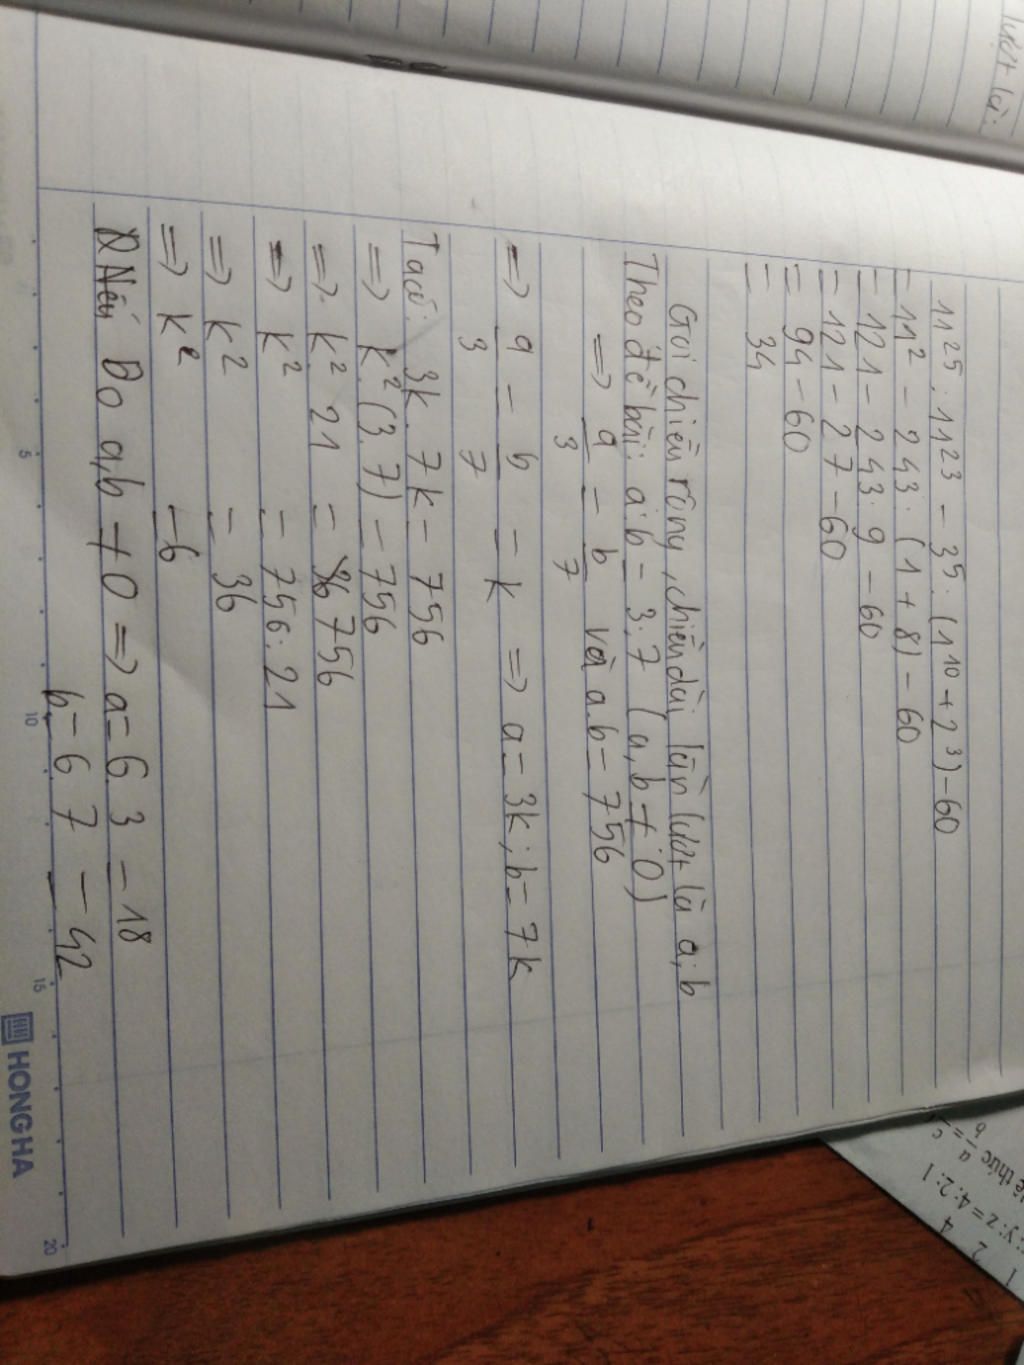 lượt là:
1125 : 1123 - 35 : (1¹⁰ + 2³) - 60
= 11² - 243 : (1 + 8) - 60
= 121 - 243 : 9 - 60
= 121 - 27 - 60
= 94 - 60
= 34
Gọi chiều rộng, chiều dài lần lượt là a; b
Theo đề bài: a:b = 3:7 (a, b ≠ 0)
=> a/3 = b/7 và a.b = 756
=> a/3 = b/7 = k => a = 3k; b = 7k
Ta có: 3k . 7k = 756
=> k² (3.7) = 756
=> k² 21 = 756
=> k² = 756 : 21
=> k² = 36
=> k = 6
Do a, b ≠ 0 => a = 6.3 = 18
b = 6 7 = 42
5
10
15
20
HONG HA
thức a/b = c
y : z = 4 : 2 : 1
4 2 1